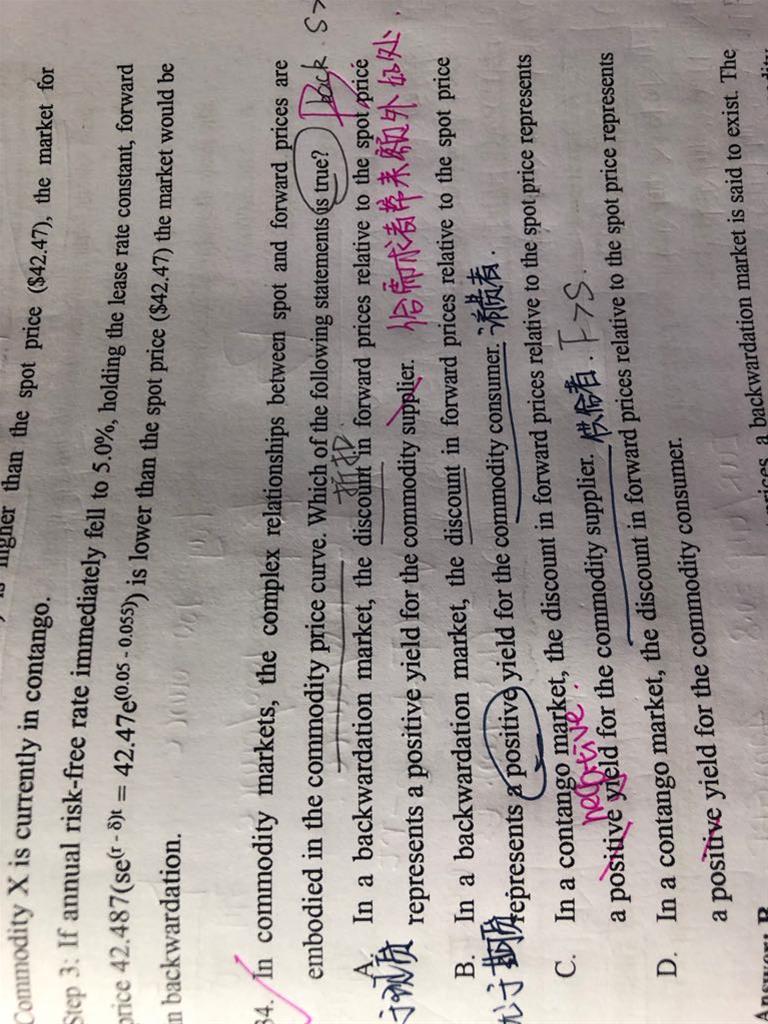 higher than the spot price ($42.47), the market for
Commodity X is currently in contango.
Step 3: If annual risk-free rate immediately fell to 5.0%, holding the lease rate constant, forward
price 42.487(se(r - δ)t = 42.47e(0.05 - 0.055)) is lower than the spot price ($42.47) the market would be
in backwardation.
34. In commodity markets, the complex relationships between spot and forward prices are
embodied in the commodity price curve. Which of the following statements is true? back. S>
折扣
A. In a backwardation market, the discount in forward prices relative to the spot price
represents a positive yield for the commodity supplier. 给需求者带来额外好处.
B. In a backwardation market, the discount in forward prices relative to the spot price
represents a positive yield for the commodity consumer. 消费者.
C. In a contango market, the discount in forward prices relative to the spot price represents
a positive yield for the commodity supplier. 供给者. F>S.
D. In a contango market, the discount in forward prices relative to the spot price represents
a positive yield for the commodity consumer.
prices, a backwardation market is said to exist. The